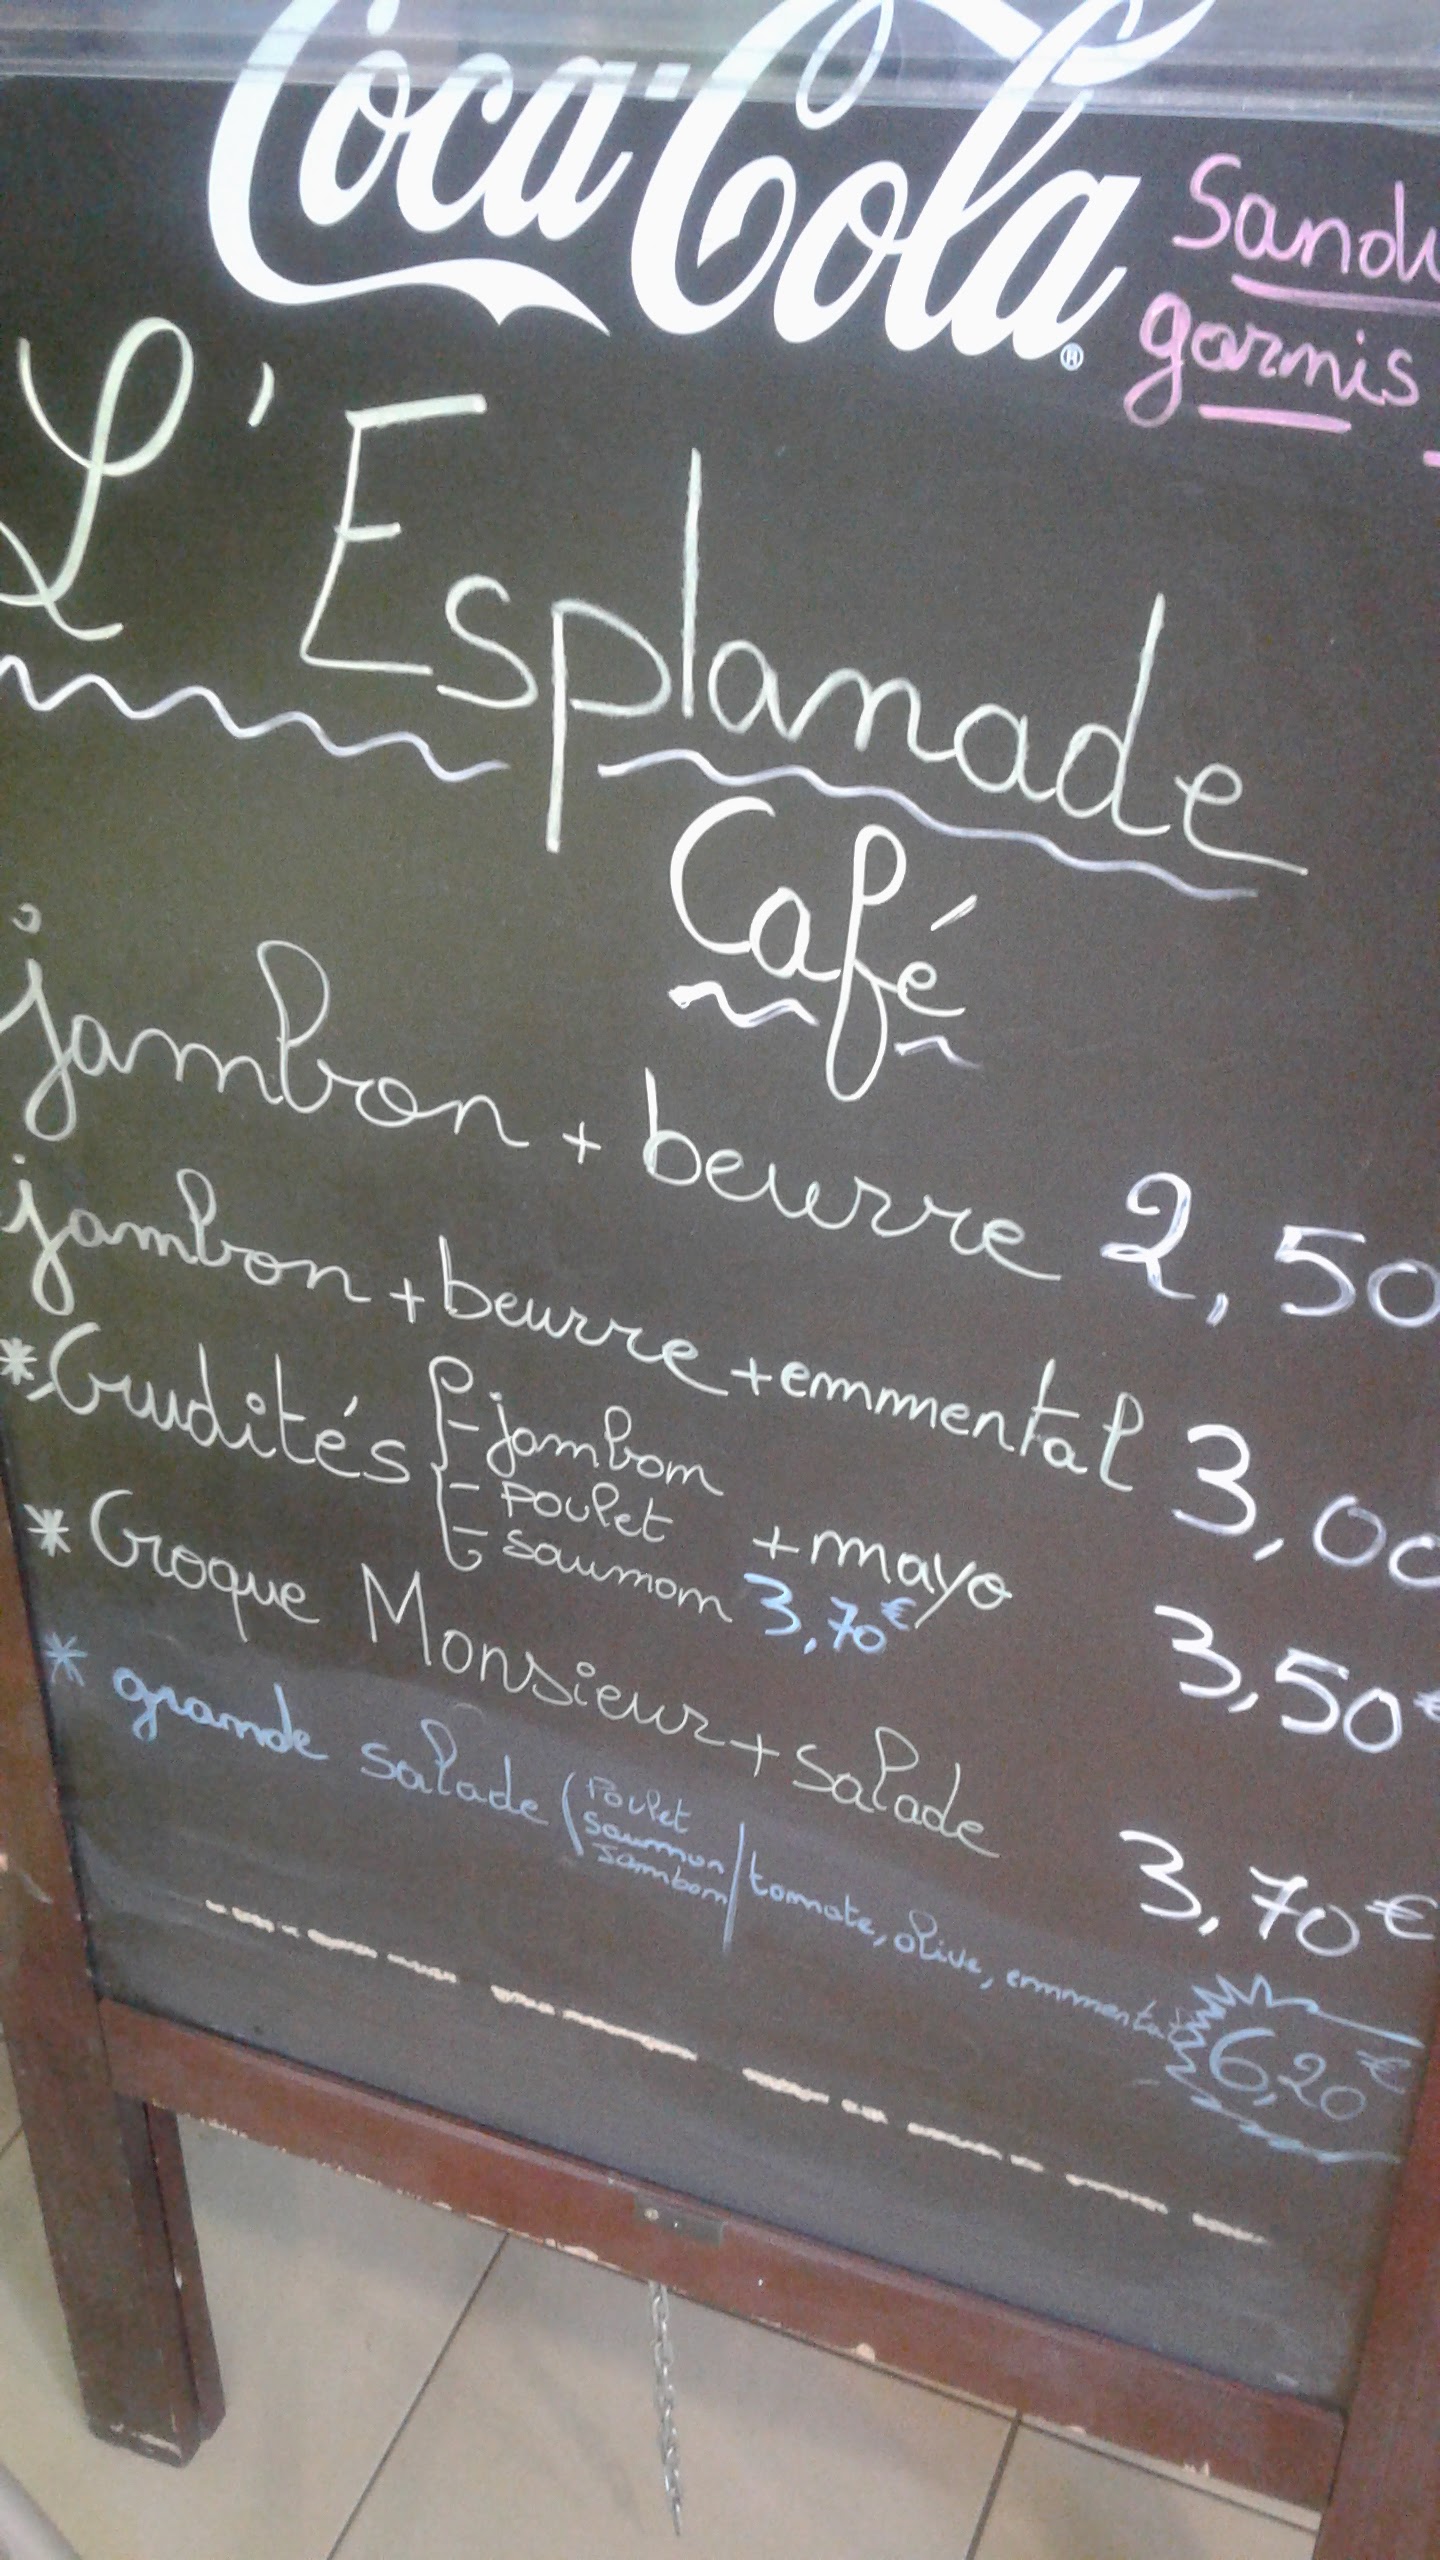 Coca-Cola
garnis
L'Esplanade
Café
jambon + beurre 2,50
jambon + beurre + emmental 3,00
* Crudités - jambon
- Poulet + mayo 3,50€
- saumon 3,70€
* Croque Monsieur + salade 3,70€
* grande salade ( Poulet
Saumon / tomate, olive, emmental 6,20€
Jambon